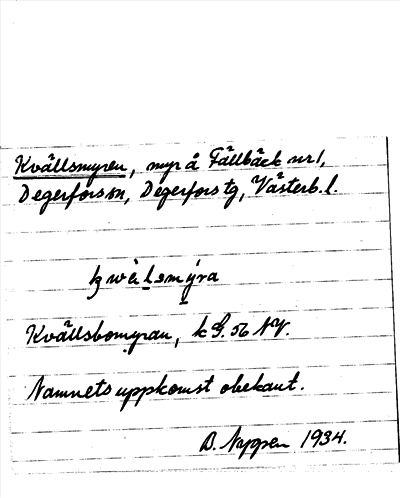 Kvällsmyren, myr å Fällbäck nr 1,
Degerfors sn, Degerfors tg, Västerb. l.
Kvällsbomyran, k G. 56 NV.
Namnets uppkomst obekant.
B. Nygren 1934.